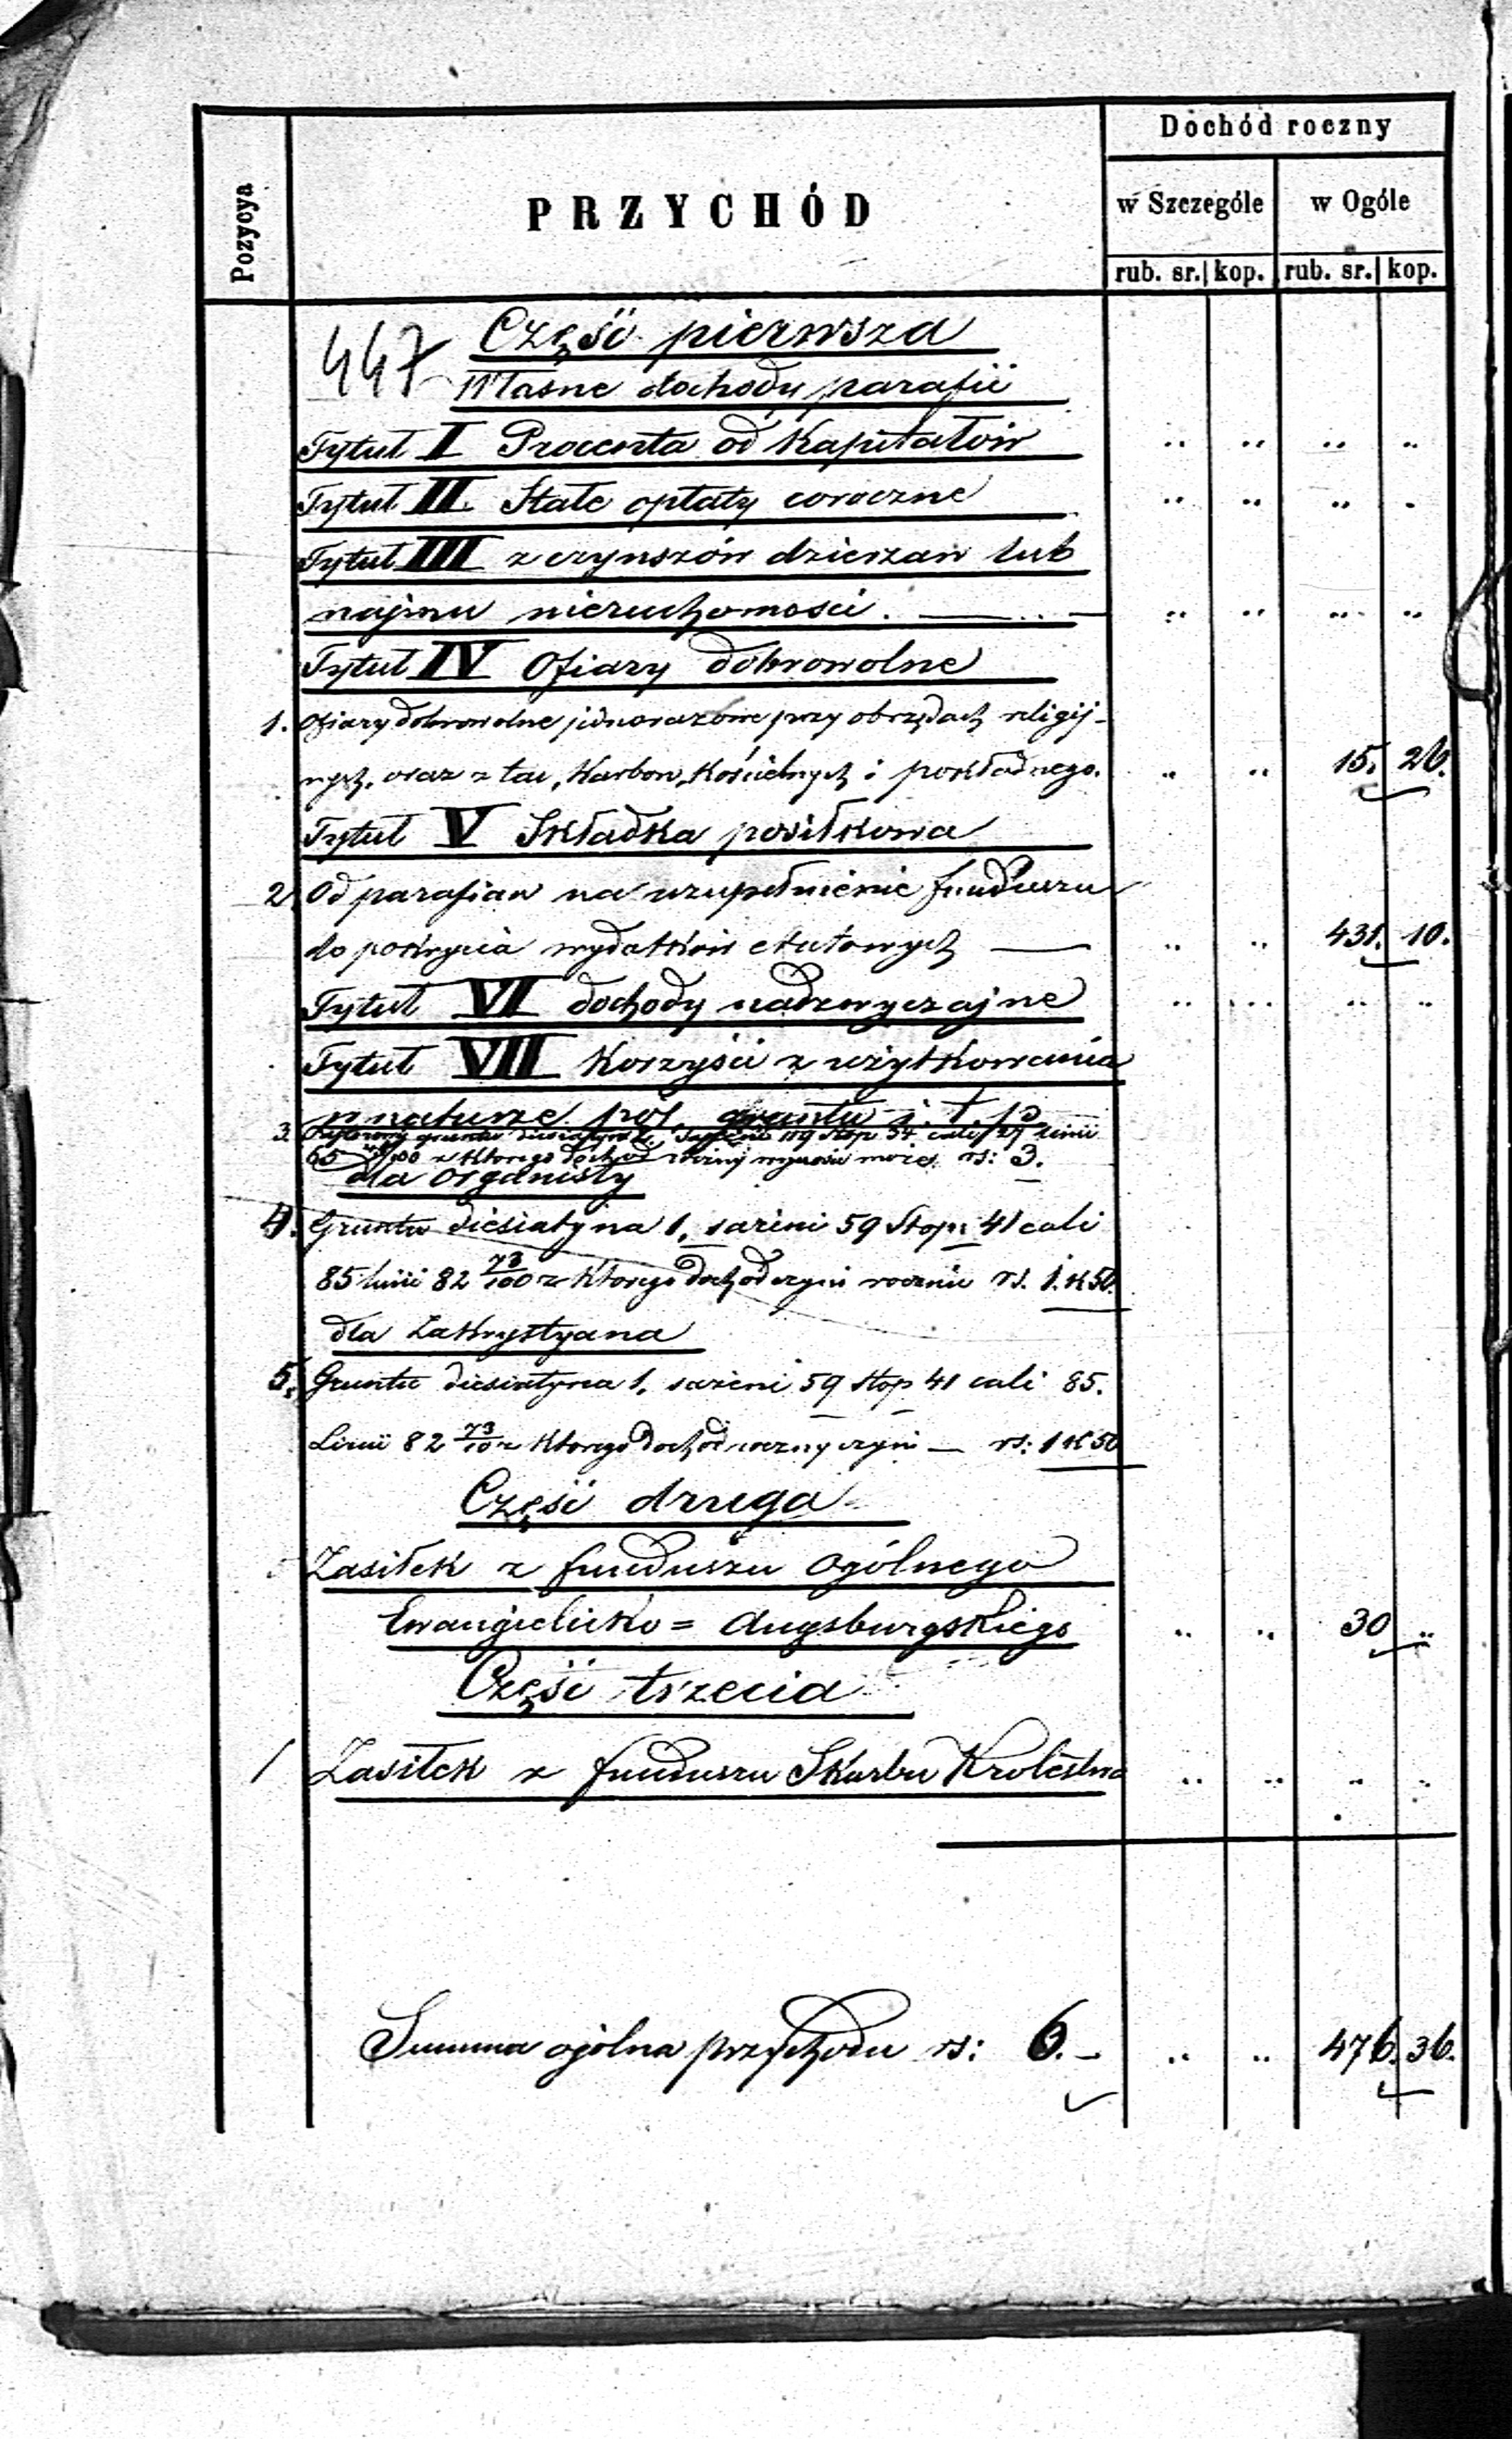 Dochód roczny
Pozycya
PRZYCHÓD
w Szczególe w Ogóle
rub. sr. kop. rub. sr. kop.
447 Część pierwsza
Własne dochody parafii
Tytuł I Procenta od Kapitałów " " " "
Tytuł II. Stałe opłaty coroczne " " " "
Tytuł III z czynszów dzierzaw lub
najmu nieruchomości. — " " " "
Tytuł IV Ofiary dobrowolne
1. Ofiary dobrowolne jednorazowe przy obrzędach religij-
nych, oraz z tac, Karbon Kościelnych i pokładnego. " " 15. 26.
Tytuł V Składka posiłkowa
2. Od parafian na uzupełnienie funduszu
do pokrycia wydatków etatowych — " " 431. 10.
Tytuł VI dochody nadzwyczajne " " " "
Tytuł VII Korzyści z użytkowania
w naturze pól, gruntu i. t. p.
3. gruntu 2. Sążeni 119 Stop 34 cali 27 linii
65 /100 z którego dochód roczny wynosić może rs: 3.
dla Organisty
4. Gruntu diesiatyna 1, sążeni 59 Stop 41 cali
85 linii 82 73/100 z którego dochód czyni rocznie rs. 1. K 50.
dla Zakrystyana
5. Gruntu diesiatyna 1, sążeni 59 stop 41 cali 85.
Linii 82 73/10 z którego dochód roczny czyni — rs: 1 K 50
Część druga
Zasiłek z funduszu Ogólnego
Ewangielicko = Augsburgskiego " " 30 "
Część trzecia
1 Zasiłek z funduszu Skarbu Królestwa " " " "
Summa ogólna przychodu rs: 6. — " " 476. 36.